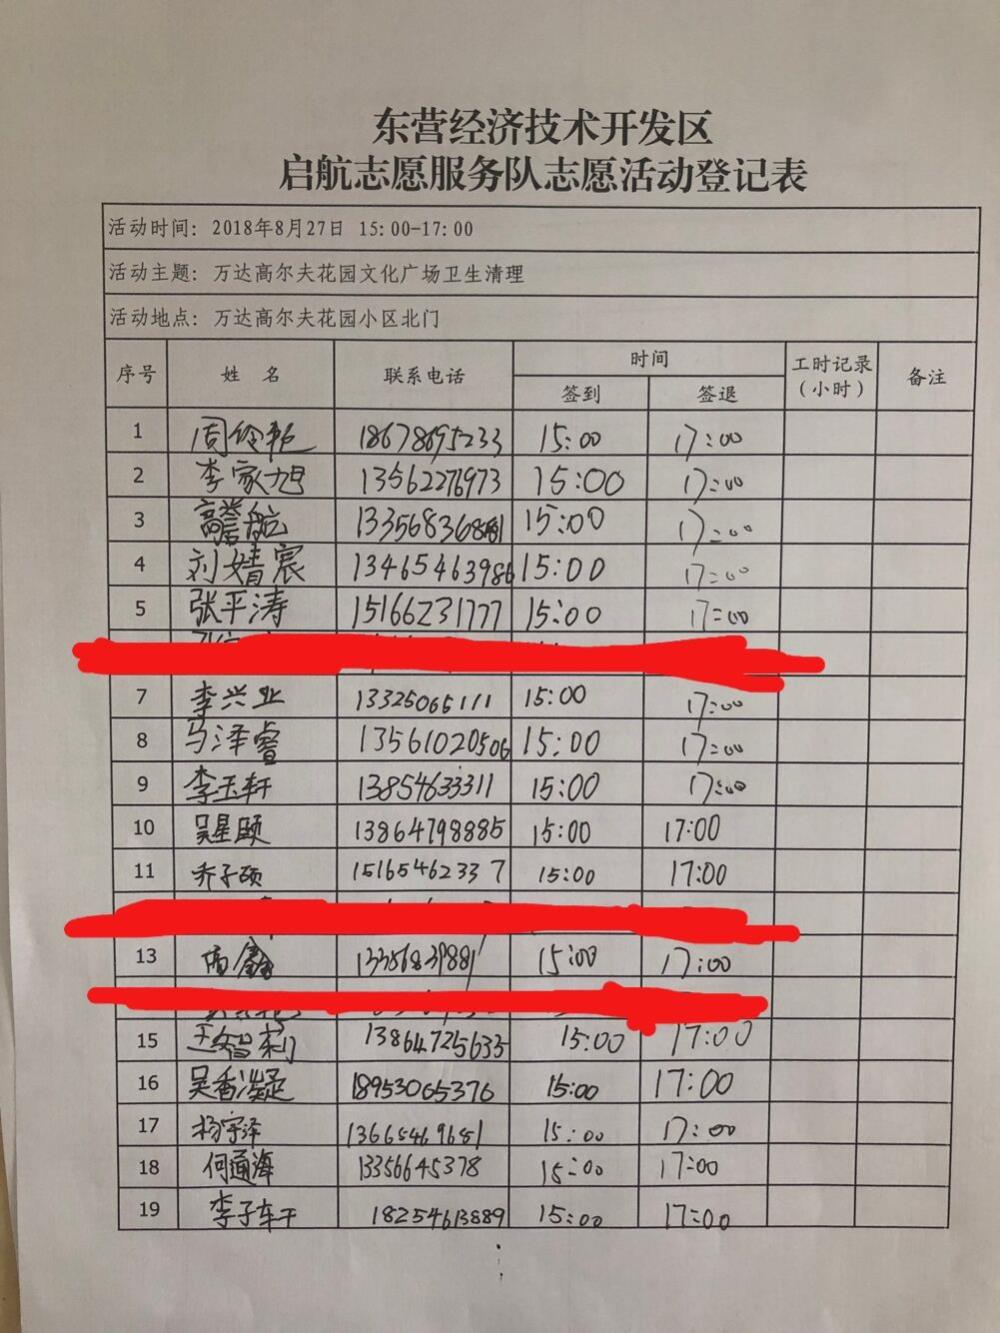 东营经济技术开发区
启航志愿服务队志愿活动登记表
活动时间：2018年8月27日 15:00-17:00
活动主题：万达高尔夫花园文化广场卫生清理
活动地点：万达高尔夫花园小区北门
序号 姓 名 联系电话 时间 签到 签退 工时记录（小时） 备注
1 周伶 18678695233 15:00 17:00
2 李家旭 13562276973 15:00 17:00
3 高誉航 15:00 17:00
4 刘婧宸 13465463986 15:00 17:00
5 张平涛 15166231777 15:00 17:00
7 李兴业 13325065111 15:00 17:00
8 马泽睿 13561020506 15:00 17:00
9 李玉轩 13854633311 15:00 17:00
10 吴星颐 13864798885 15:00 17:00
11 乔子硕 15165462337 15:00 17:00
13 鑫 13356839881 15:00 17:00
15 王智莉 13864725635 15:00 17:00
16 吴香凝 18953065376 15:00 17:00
17 杨宇泽 13665469681 15:00 17:00
18 何通海 13356645378 15:00 17:00
19 李子 18254613889 15:00 17:00